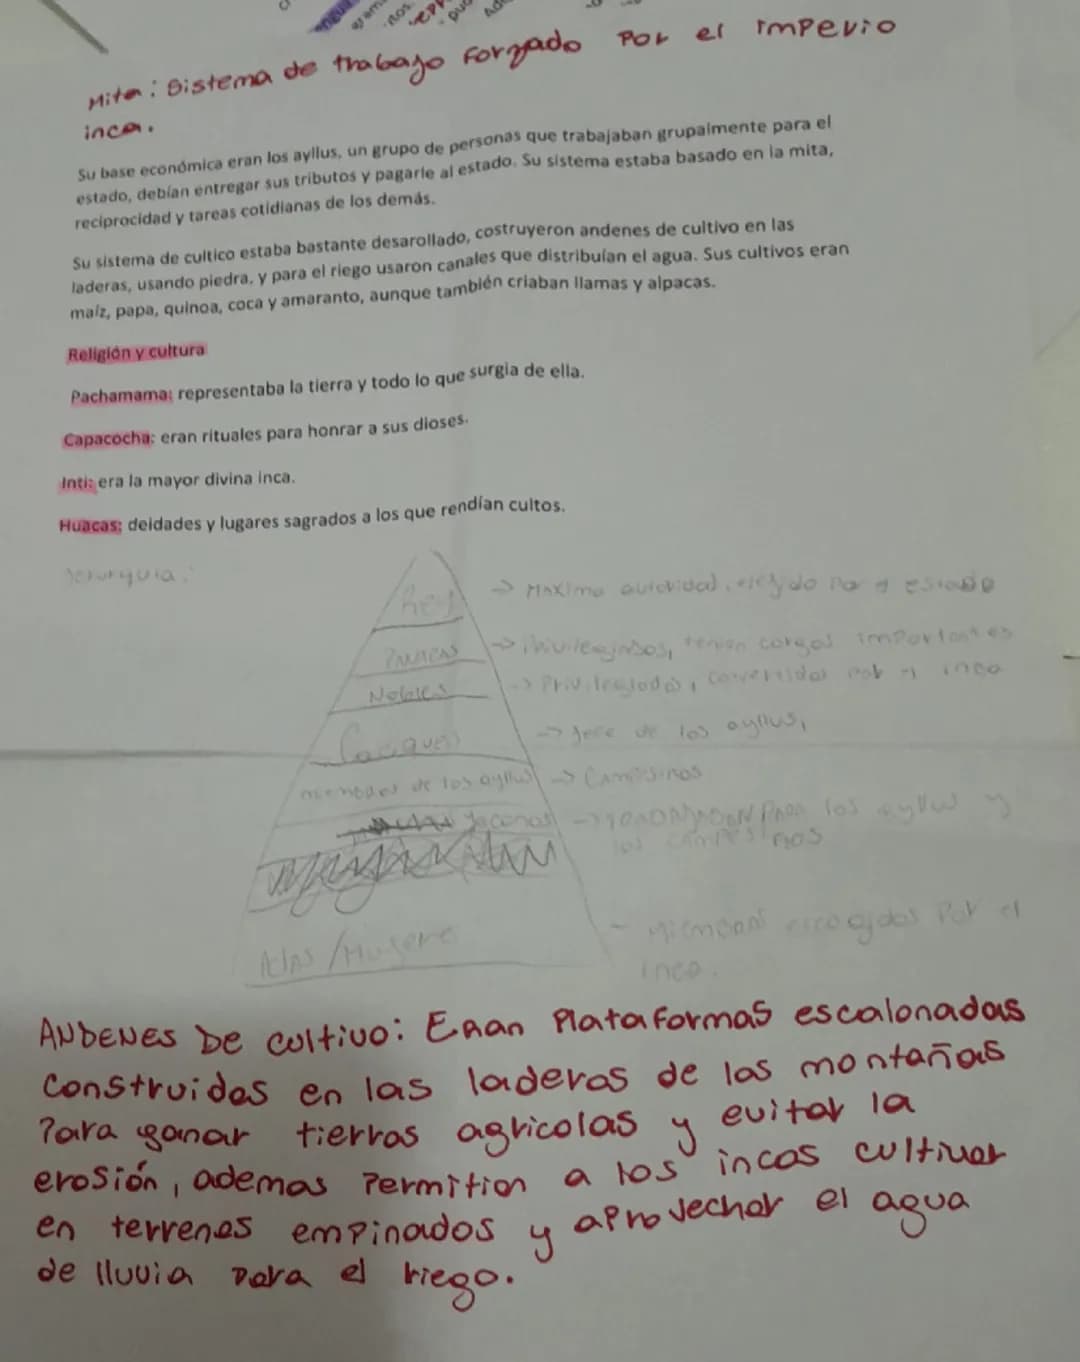 Mita: Sistema de trabajo Forzado Por el imperio
inca.
Su base económica eran los ayllus, un grupo de personas que trabajaban grupalmente para el
estado, debían entregar sus tributos y pagarle al estado. Su sistema estaba basado en la mita,
reciprocidad y tareas cotidianas de los demás.
Su sistema de cultico estaba bastante desarollado, costruyeron andenes de cultivo en las
laderas, usando piedra, y para el riego usaron canales que distribuían el agua. Sus cultivos eran
maíz, papa, quinoa, coca y amaranto, aunque también criaban llamas y alpacas.
Religión y cultura
Pachamama: representaba la tierra y todo lo que surgia de ella.
Capacocha: eran rituales para honrar a sus dioses.
Inti: era la mayor divina inca.
Huacas: deidades y lugares sagrados a los que rendían cultos.
Rey → Maxima autoridad, por estado
Panacas → tenian cargos importantes
Nobles → Privilegiados, por el inca
Caciques → Jefe de los ayllus,
miembros de los ayllus → Campesinos
Yaconas → para los ayllus y
los campesinos
/Mujere - escogidas Por el
inca.
ANDENES DE cultivo: Eran Plataformas escalonadas
construidas en las laderas de las montañas
Para ganar tierras agricolas y evitar la
erosión, ademas Permition a los incas cultivar
en terrenos empinados y aprovechar el agua
de lluvia para el riego.